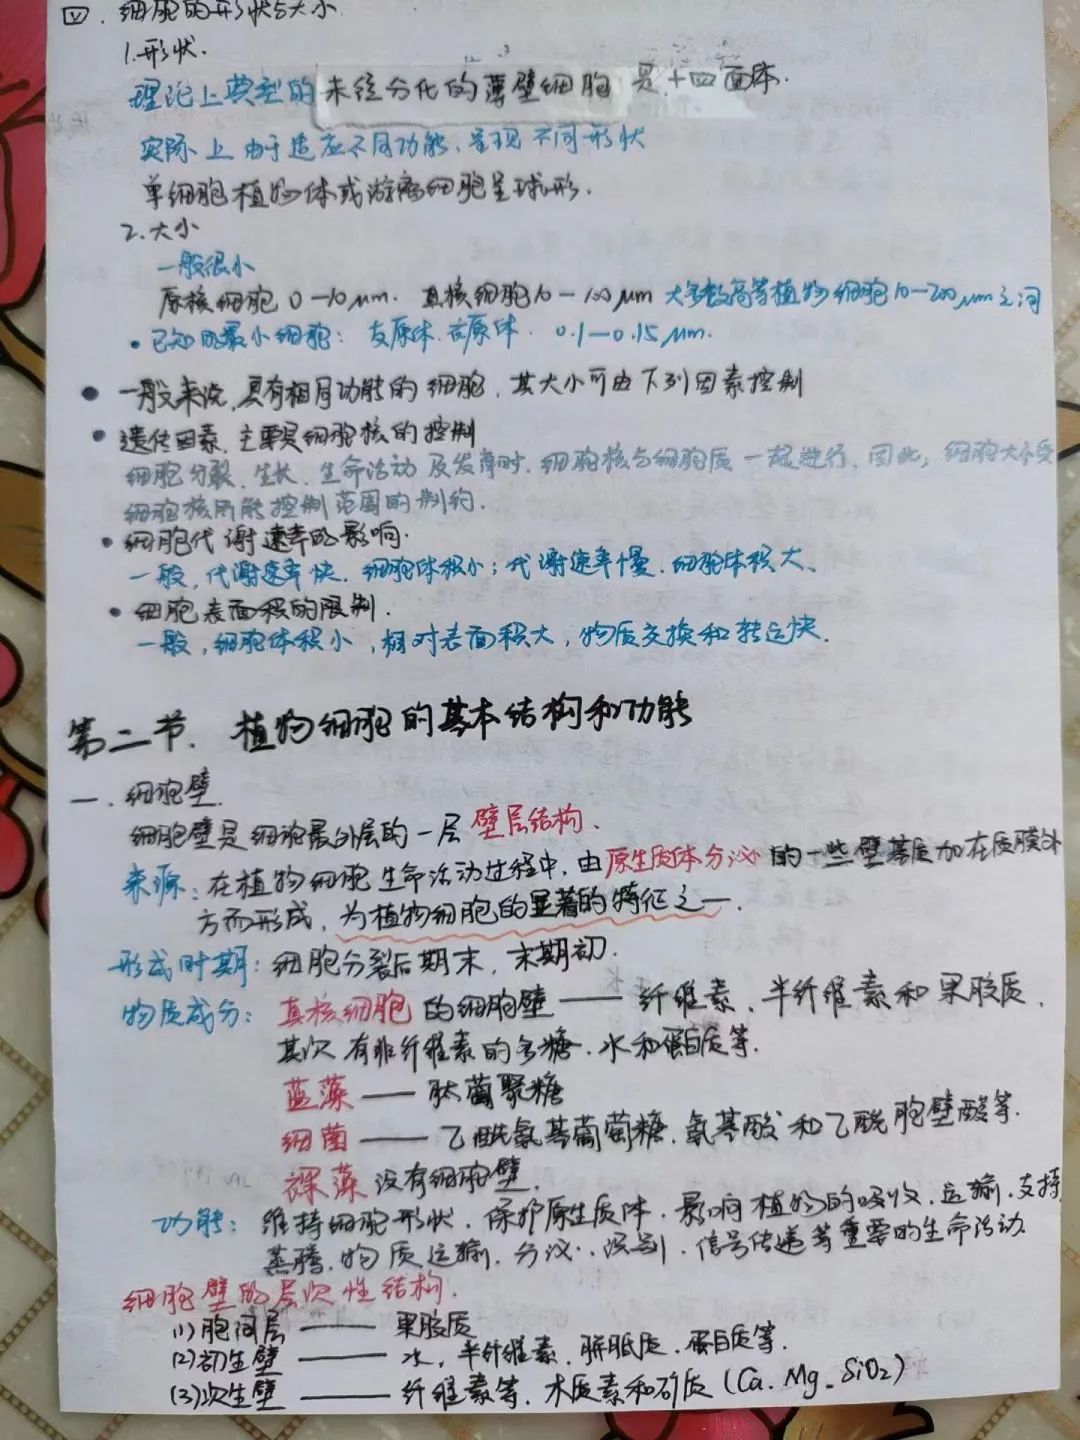 四、细胞的形状与大小
1.形状.
理论上典型的未经分化的薄壁细胞是十四面体.
实际上由于适应不同功能,呈现不同形状
单细胞植物体或游离细胞呈球形.
2.大小
一般很小
原核细胞 0—10μm. 真核细胞10—100μm 大多数高等植物细胞10—200μm之间
• 已知的最小细胞: 支原体. 0.1—0.15μm.
• 一般来说,具有相同功能的细胞,其大小可由下列因素控制
• 遗传因素,主要是细胞核的控制
细胞分裂、生长、生命活动及发育时,细胞核与细胞质一起进行,因此,细胞大小受
细胞核所能控制范围的制约.
• 细胞代谢速率的影响.
一般,代谢速率快,细胞体积小;代谢速率慢,细胞体积大、
• 细胞表面积的限制.
一般,细胞体积小,相对表面积大,物质交换和转运快.
第二节. 植物细胞的基本结构和功能
一、细胞壁.
细胞壁是细胞最外层的一层壁层结构.
来源:在植物细胞生命活动过程中,由原生质体分泌的一些壁基质加在质膜外
方而形成,为植物细胞的显著的特征之一.
形成时期:细胞分裂后期末,末期初.
物质成分:真核细胞的细胞壁——纤维素、半纤维素和果胶质,
其次有非纤维素的多糖、水和蛋白质等.
蓝藻——肽葡聚糖
细菌——乙酰氨基葡萄糖、氨基酸和乙酰胞壁酸等.
裸藻没有细胞壁.
功能:维持细胞形状、保护原生质体、影响植物的吸收、运输、支持
蒸腾、物质运输、分泌、识别、信号传递等重要的生命活动.
细胞壁的层次性结构.
(1)胞间层——果胶质
(2)初生壁——水,半纤维素、胼胝质、蛋白质等.
(3)次生壁——纤维素等,木质素和矿质(Ca、Mg、SiO2)